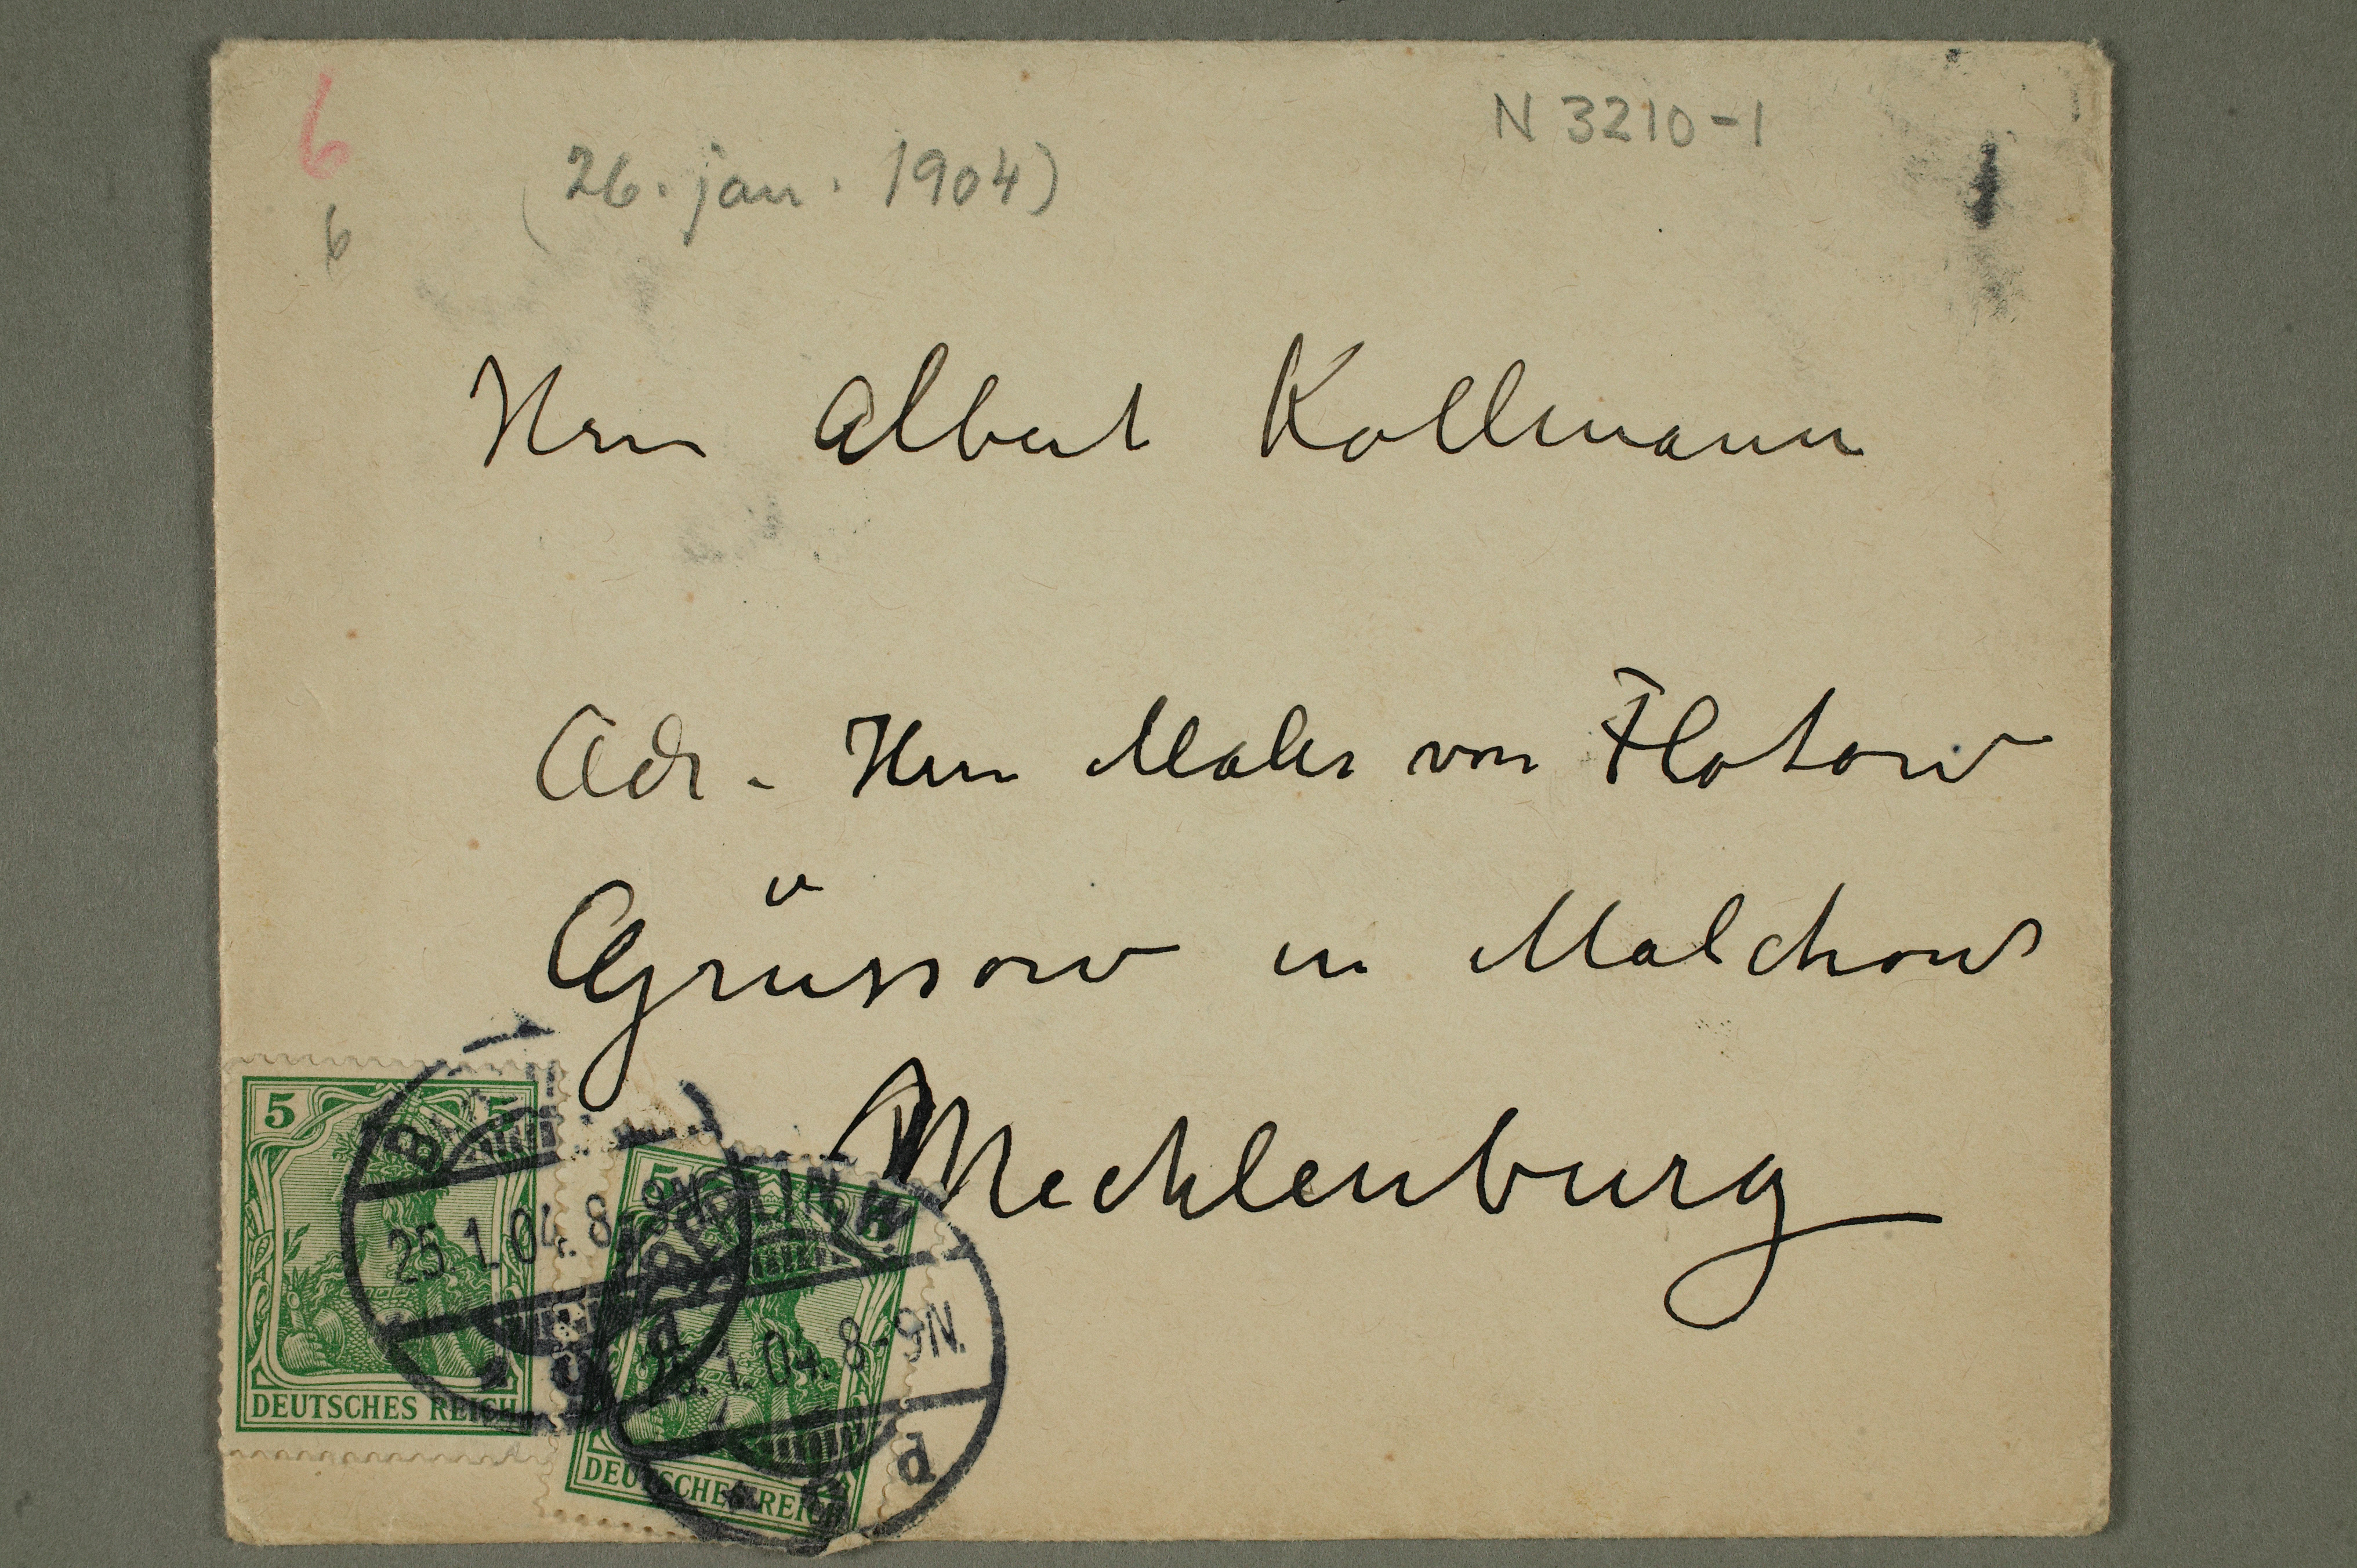 6
N 3210-1
(26. jan. 1904)
6
Herrn Albert Kollmann
Adr. Herrn Maler von Flotow
Grüssow in Malchow
Mecklenburg
5 5
25.1.04. 8-9N.
DEUTSCHES REICH
5
BERLIN.W.
.1.04. 8-9N.
d
DEUTSCHES REICH